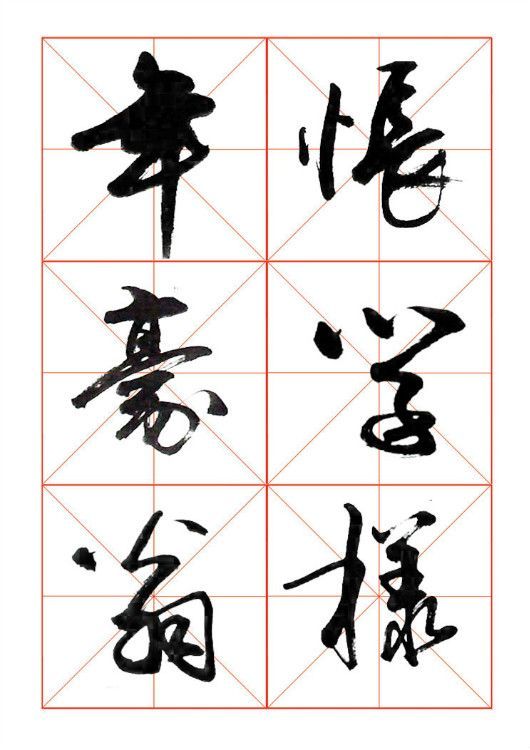 悵学樣
年豪翁